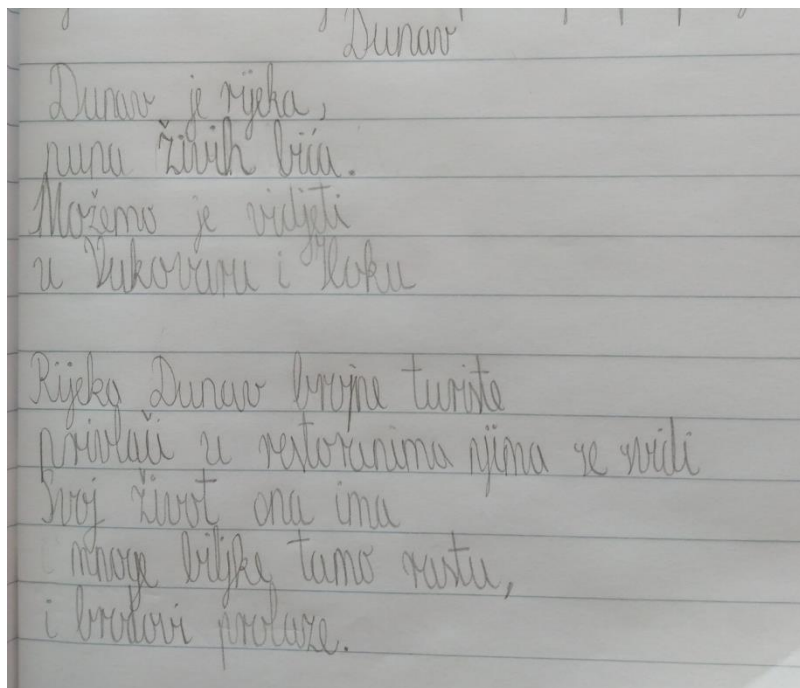 Dunav
Dunav je rijeka,
puna živih bića.
Možemo je vidjeti
u Vukovaru i Iloku
Rijeka Dunav brojne turiste
privlači u restoranima njima se svidi
Svoj život ona ima
i mnoge biljke tamo rastu,
i brodovi prolaze.